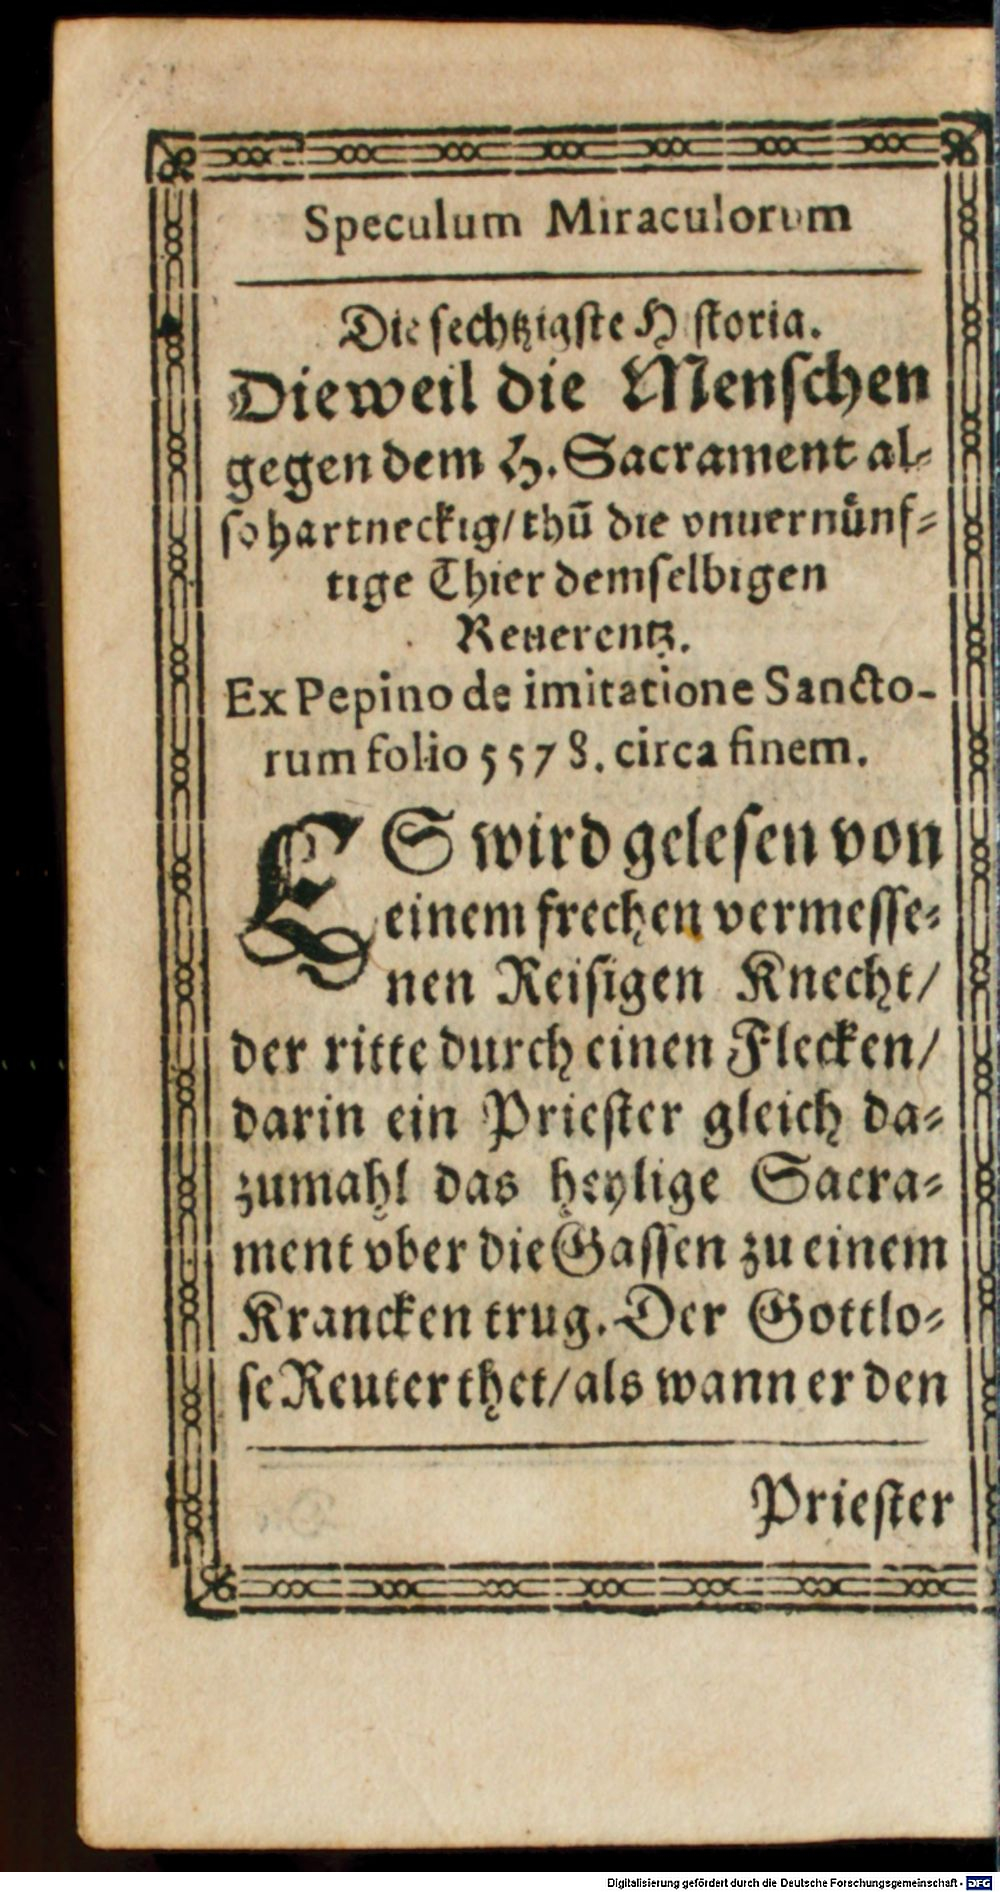 Speculum Miraculorum
Die sechtzigste Historia.
Dieweil die Menschen
gegen dem H. Sacrament al-
so hartneckig/ thū die vnuernünf-
tige Thier demselbigen
Reuerentz.
Ex Pepino de imitatione Sancto-
rum folio 5578. circa finem.
ES wird gelesen von
einem frechen vermesse-
nen Reisigen Knecht/
der ritte durch einen Flecken/
darin ein Priester gleich da-
zumahl das heylige Sacra-
ment vber die Gassen zu einem
Krancken trug. Der Gottlo-
se Reuter thet/ als wann er den
Priester
Digitalisierung gefördert durch die Deutsche Forschungsgemeinschaft - DFG